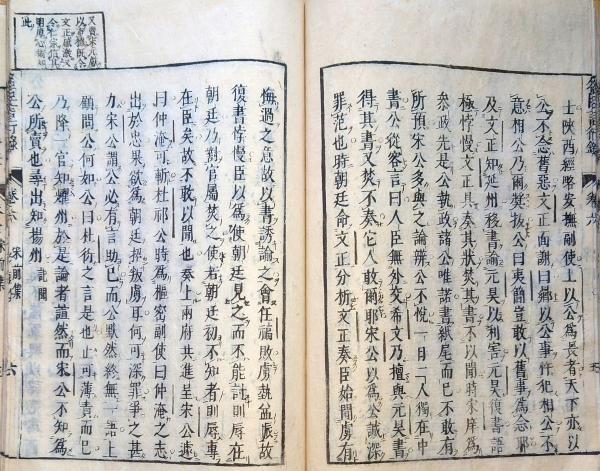 士陝西經略安撫副使上以公爲長者天下亦以
公不念舊惡文正面謝曰鄉以公事忤犯相公不
意相公乃爾奬拔公曰夷簡豈敢以舊事爲念耶
及文正知延州移書諭元昊以利害元昊復書語
極悖慢文正具奏其狀焚其書不以聞時宋庠爲
參政先是公執政諸公唯諾書紙尾而已不敢有
所預宋公多與之論辯公不悅一日二人獨在中
書公從容言曰人臣無外交希文乃擅與元昊書
得其書又焚不奏它人敢爾耶宋公以爲公誠深
罪范也時朝廷命文正分析文正奏臣始聞虜有
又賣宋元憲
以市德既令
文正感激又
此
悔過之意故以書誘諭之會任福敗虜執益振故
復書悖慢臣以爲使朝廷見之而不能討則辱在
朝廷乃對官屬焚之使若朝廷初不知者則辱專
在臣矣故不敢以聞也奏上兩府共進呈宋公遽
曰仲淹可斬杜祁公時爲樞密副使曰仲淹之志
出於忠果欲爲朝廷招叛虜耳何可深罪爭之甚
力宋公謂公必有言助己而公默然終無一語上
顧問公何如公曰杜衍之言是也止可薄責而已
乃降一官知耀州於是論者諠然而宋公不知爲
公所賣也尋出知揚州 記聞
卷六
宋前集
六